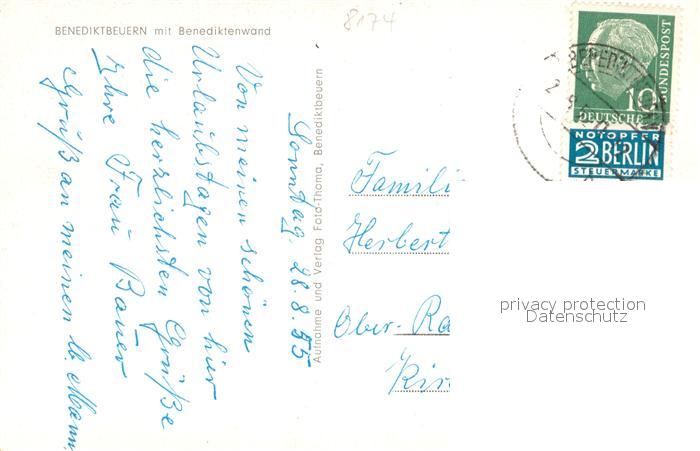 8174
BENEDIKTBEUERN mit Benediktenwand
Sonntag. 28.8.55
Von meinen schönen
Urlaubstagen von hier
die herzlichsten Grüße
Ihre Frau Bauer
Gruß an meinen lb. Mann.
Aufnahme und Verlag Foto-Thoma, Benediktbeuern
Famili
Herbert
Ober-Ra
Kir
10
DEUTSCHE
BUNDESPOST
NOTOPFER
2 BERLIN
STEUERMARKE
privacy protection
Datenschutz